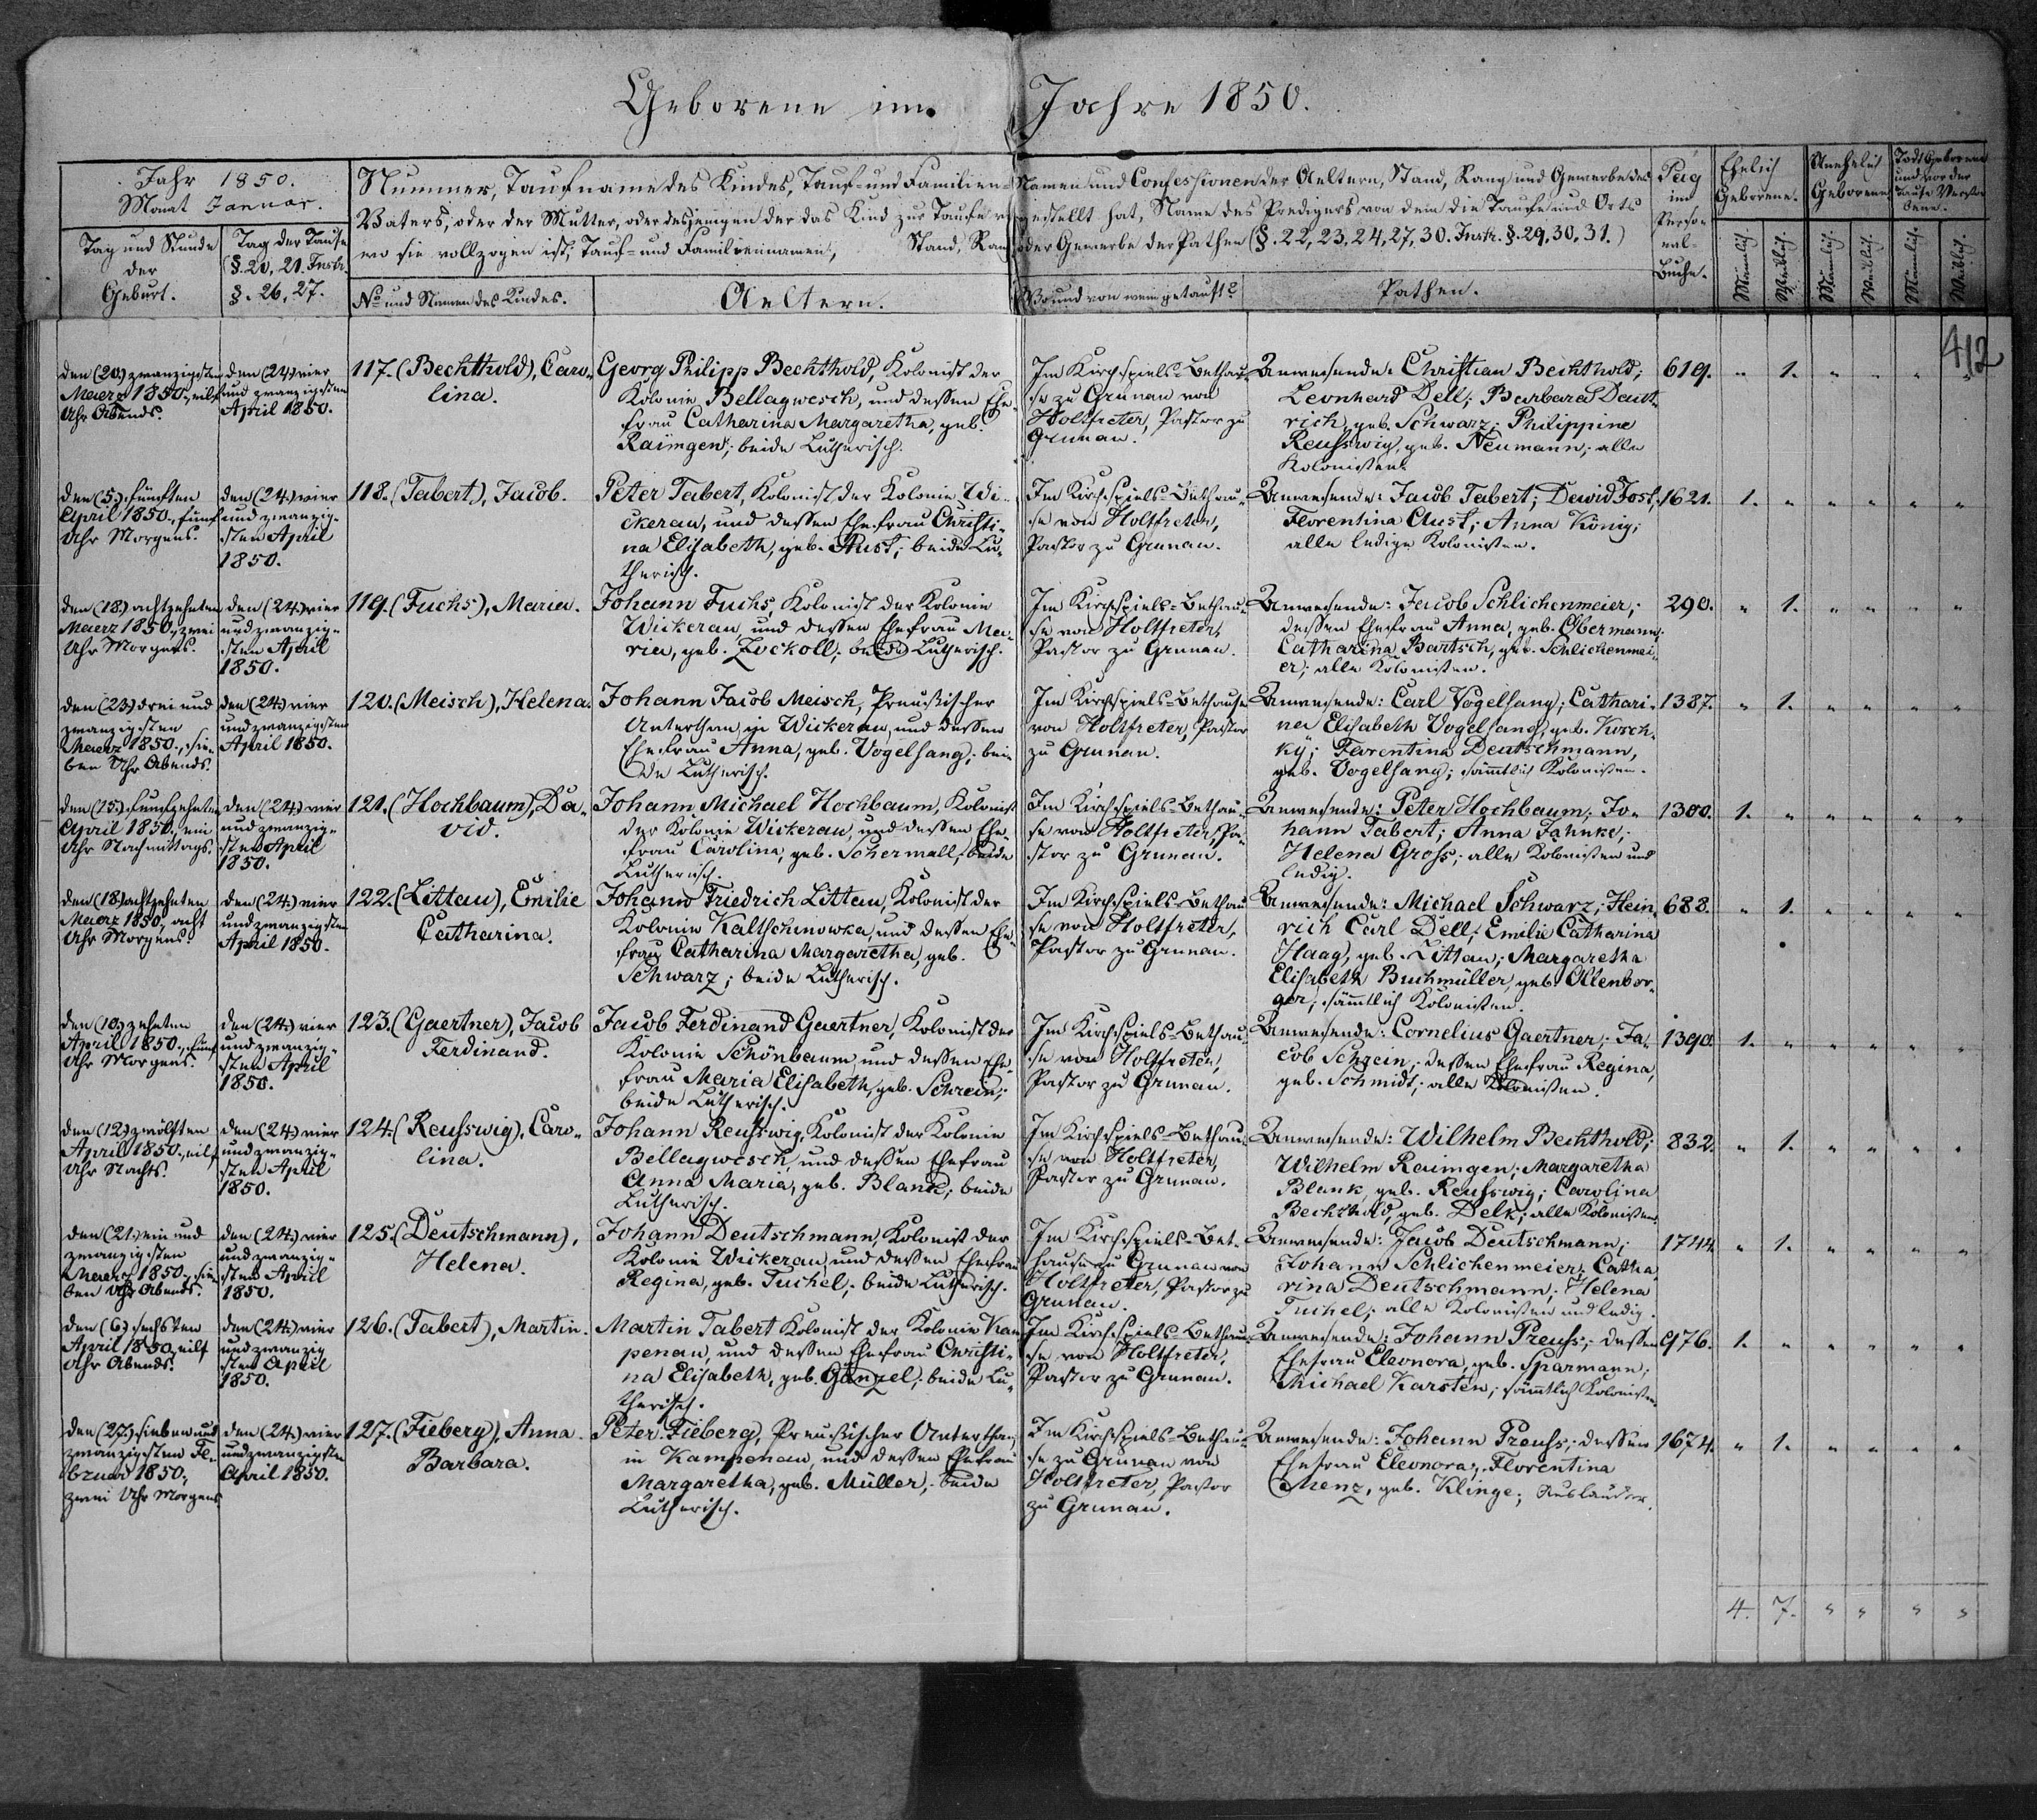 Geborene im Jahre 1850.
412
Jahr 1850.
Monat Januar.
Tag und Stunde
der
Geburt.
Tag der Taufe
(§. 20, 21. Instr.
§. 26, 27.
Nummer, Taufname des Kindes, Tauf- und Familien-Namen und Confessionen der Aeltern, Stand, Rang und Gewerbe des
Vaters, oder der Mutter, oder desjenigen der das Kind zur Taufe gestellt hat, Name des Predigers von dem die Taufe und Orts
wo sie vollzogen ist, Tauf- und Familiennamen, Stand, Rang oder Gewerbe der Pathen (§. 22, 23, 24, 27, 30. Instr. §. 29, 30, 31.)
No und Namen des Kindes.
Aeltern.
Wo und von wem getauft?
Pathen.
Pag
im
Perso-
nal-
Buche.
Ehelich
Geborene.
Unehelich
Geborene
Todtgeborene
und vor der
Taufe Verstor-
bene.
Männlich.
Weiblich.
Männlich.
Weiblich.
Männlich.
Weiblich.
den (20.) zwanzigsten
Maerz 1850., eilf
Uhr Abends.
den (24.) vier
und zwanzigsten
April 1850.
117. (Bechthold), Caro-
lina.
Georg Philipp Bechthold, Kolonist der
Kolonie Bellagwesch, und dessen Ehe-
frau Catharina Margaretha, geb.
Raimgen; beide Lutherisch.
Im Kirchspiels-Bethau-
se zu Grunau von
Holtfreter, Pastor zu
Grunau.
Anwesende: Christian Bechthold;
Leonhard Dell; Barbara Daut-
rich, geb. Schwarz; Philippine
Reusswig, geb. Neumann; alle
Kolonisten.
619. " 1. " " " "
den (5.) fünften
April 1850., fünf
Uhr Morgens.
den (24.) vier
und zwanzig-
sten April
1850.
118. (Tabert), Jacob.
Peter Tabert, Kolonist der Kolonie Wi-
ckerau, und dessen Ehefrau Christi-
na Elisabeth, geb. Aust; beide Lu-
therisch.
Im Kirchspiels-Bethau-
se von Holtfreter,
Pastor zu Grunau.
Anwesende: Jacob Tabert; Dawid Jost;
Florentina Aust; Anna König;
alle ledige Kolonisten.
1621. 1. " " " " "
den (18.) achtzehnten
Maerz 1850., zwei
Uhr Morgens.
den (24.) vier
und zwanzig-
sten April
1850.
119. (Fuchs), Maria.
Johann Fuchs, Kolonist der Kolonie
Wickerau, und dessen Ehefrau Ma-
ria, geb. Zockoll; beide Lutherisch.
Im Kirchspiels-Bethau-
se von Holtfreter,
Pastor zu Grunau.
Anwesende: Jacob Schlichenmeier;
dessen Ehefrau Anna, geb. Obermann;
Catharina Bartsch, geb. Schlichenmei-
er; alle Kolonisten.
290. " 1. " " " "
den (23.) drei und
zwanzigsten
Maerz 1850., sie-
ben Uhr Abends.
den (24.) vier
und zwanzigsten
April 1850.
120. (Meisch), Helena.
Johann Jacob Meisch, Preussischer
Unterthan, in Wickerau, und dessen
Ehefrau Anna, geb. Vogelsang; bei-
de Lutherisch.
Im Kirchspiels-Bethause
von Holtfreter, Pastor
zu Grunau.
Anwesende: Carl Vogelsang; Cathari-
na Elisabeth Vogelsang, geb. Kosch-
ky; Florentina Deutschmann,
geb. Vogelsang; sämtlich Kolonisten.
1387. " 1. " " " "
den (15.) fünfzehnten
April 1850., ein
Uhr Nachmittags.
den (24.) vier
und zwanzig-
sten April
1850.
121. (Hochbaum), Da-
vid.
Johann Michael Hochbaum, Kolonist
der Kolonie Wickerau, und dessen Ehe-
frau Carolina, geb. Schermall; beide
Lutherisch.
Im Kirchspiels-Bethau-
se von Holtfreter, Pa-
stor zu Grunau.
Anwesende: Peter Hochbaum; Jo-
hann Tabert; Anna Jahnke;
Helena Gross; alle Kolonisten und
ledig.
1300. 1. " " " " "
den (18.) achtzehnten
Maerz 1850., acht
Uhr Morgens.
den (24.) vier
und zwanzigsten
April 1850.
122. (Littau), Emilie
Catharina.
Johann Friedrich Littau, Kolonist der
Kolonie Kaltschinowka, und dessen Ehe-
frau Catharina Margaretha, geb.
Schwarz; beide Lutherisch.
Im Kirchspiels-Bethau-
se von Holtfreter,
Pastor zu Grunau.
Anwesende: Michael Schwarz; Hein-
rich Carl Dell; Emilie Catharina
Haag, geb. Littau; Margaretha
Elisabeth Buchmüller, geb. Altenbor-
ger; sämtlich Kolonisten.
688. " 1. " " " "
den (10.) zehnten
April 1850., fünf
Uhr Morgens.
den (24.) vier
und zwanzig-
sten April
1850.
123. (Gaertner), Jacob
Ferdinand.
Jacob Ferdinand Gaertner, Kolonist der
Kolonie Schönbaum, und dessen Ehe-
frau Maria Elisabeth, geb. Schrein;
beide Lutherisch.
Im Kirchspiels-Bethau-
se von Holtfreter,
Pastor zu Grunau.
Anwesende: Cornelius Gaertner; Ja-
cob Schrein; dessen Ehefrau Regina,
geb. Schmidt; alle Kolonisten.
1390. 1. " " " " "
den (12.) zwölften
April 1850., eilf
Uhr Nachts.
den (24.) vier
und zwanzig-
sten April
1850.
124. (Reusswig), Caro-
lina.
Johann Reusswig, Kolonist der Kolonie
Bellagwesch, und dessen Ehefrau
Anna Maria, geb. Blank; beide
Lutherisch.
Im Kirchspiels-Bethau-
se von Holtfreter,
Pastor zu Grunau.
Anwesende: Wilhelm Bechthold;
Wilhelm Raimgen; Margaretha
Blank, geb. Reusswig; Carolina
Bechthold, geb. Delk; alle Kolonisten.
832. " 1. " " " "
den (21.) ein und
zwanzigsten
Maerz 1850., sie-
ben Uhr Abends.
den (24.) vier
und zwanzig-
sten April
1850.
125. (Deutschmann),
Helena.
Johann Deutschmann, Kolonist der
Kolonie Wickerau, und dessen Ehefrau
Regina, geb. Tuchel; beide Lutherisch.
Im Kirchspiels-Bet-
hause zu Grunau von
Holtfreter, Pastor zu
Grunau.
Anwesende: Jacob Deutschmann;
Johann Schlichenmeier; Catha-
rina Deutschmann; Helena
Tuchel; alle Kolonisten und ledig.
1744. " 1. " " " "
den (6.) sechsten
April 1850, eilf
Uhr Abends.
den (24.) vier
und zwanzig
sten April
1850.
126. (Tabert), Martin.
Martin Tabert, Kolonist der Kolonie Kam
penau, und dessen Ehefrau Christi-
na Elisabeth, geb. Gänzel; beide Lu-
therisch.
Im Kirchspiels-Bethau-
se von Holtfreter,
Pastor zu Grunau.
Anwesende: Johann Preuss; dessen
Ehefrau Eleonora, geb. Sparmann;
Michael Karsten; sämtlich Kolonisten.
976. 1. " " " " "
den (27.) sieben und
zwanzigsten Fe-
bruar 1850.,
zwei Uhr Morgens
den (24.) vier
und zwanzigsten
April 1850.
127. (Fieberg), Anna
Barbara.
Peter Fieberg, Preussischer Unterthan,
in Kampenau, und dessen Ehefrau
Margaretha, geb. Müller; beide
Lutherisch.
Im Kirchspiels-Bethau-
se zu Grunau von
Holtfreter, Pastor
zu Grunau.
Anwesende: Johann Preuss; dessen
Ehefrau Eleonora; Florentina
Menz, geb. Klinge; Ausländer.
1674. " 1. " " " "
4. 7. " " " "